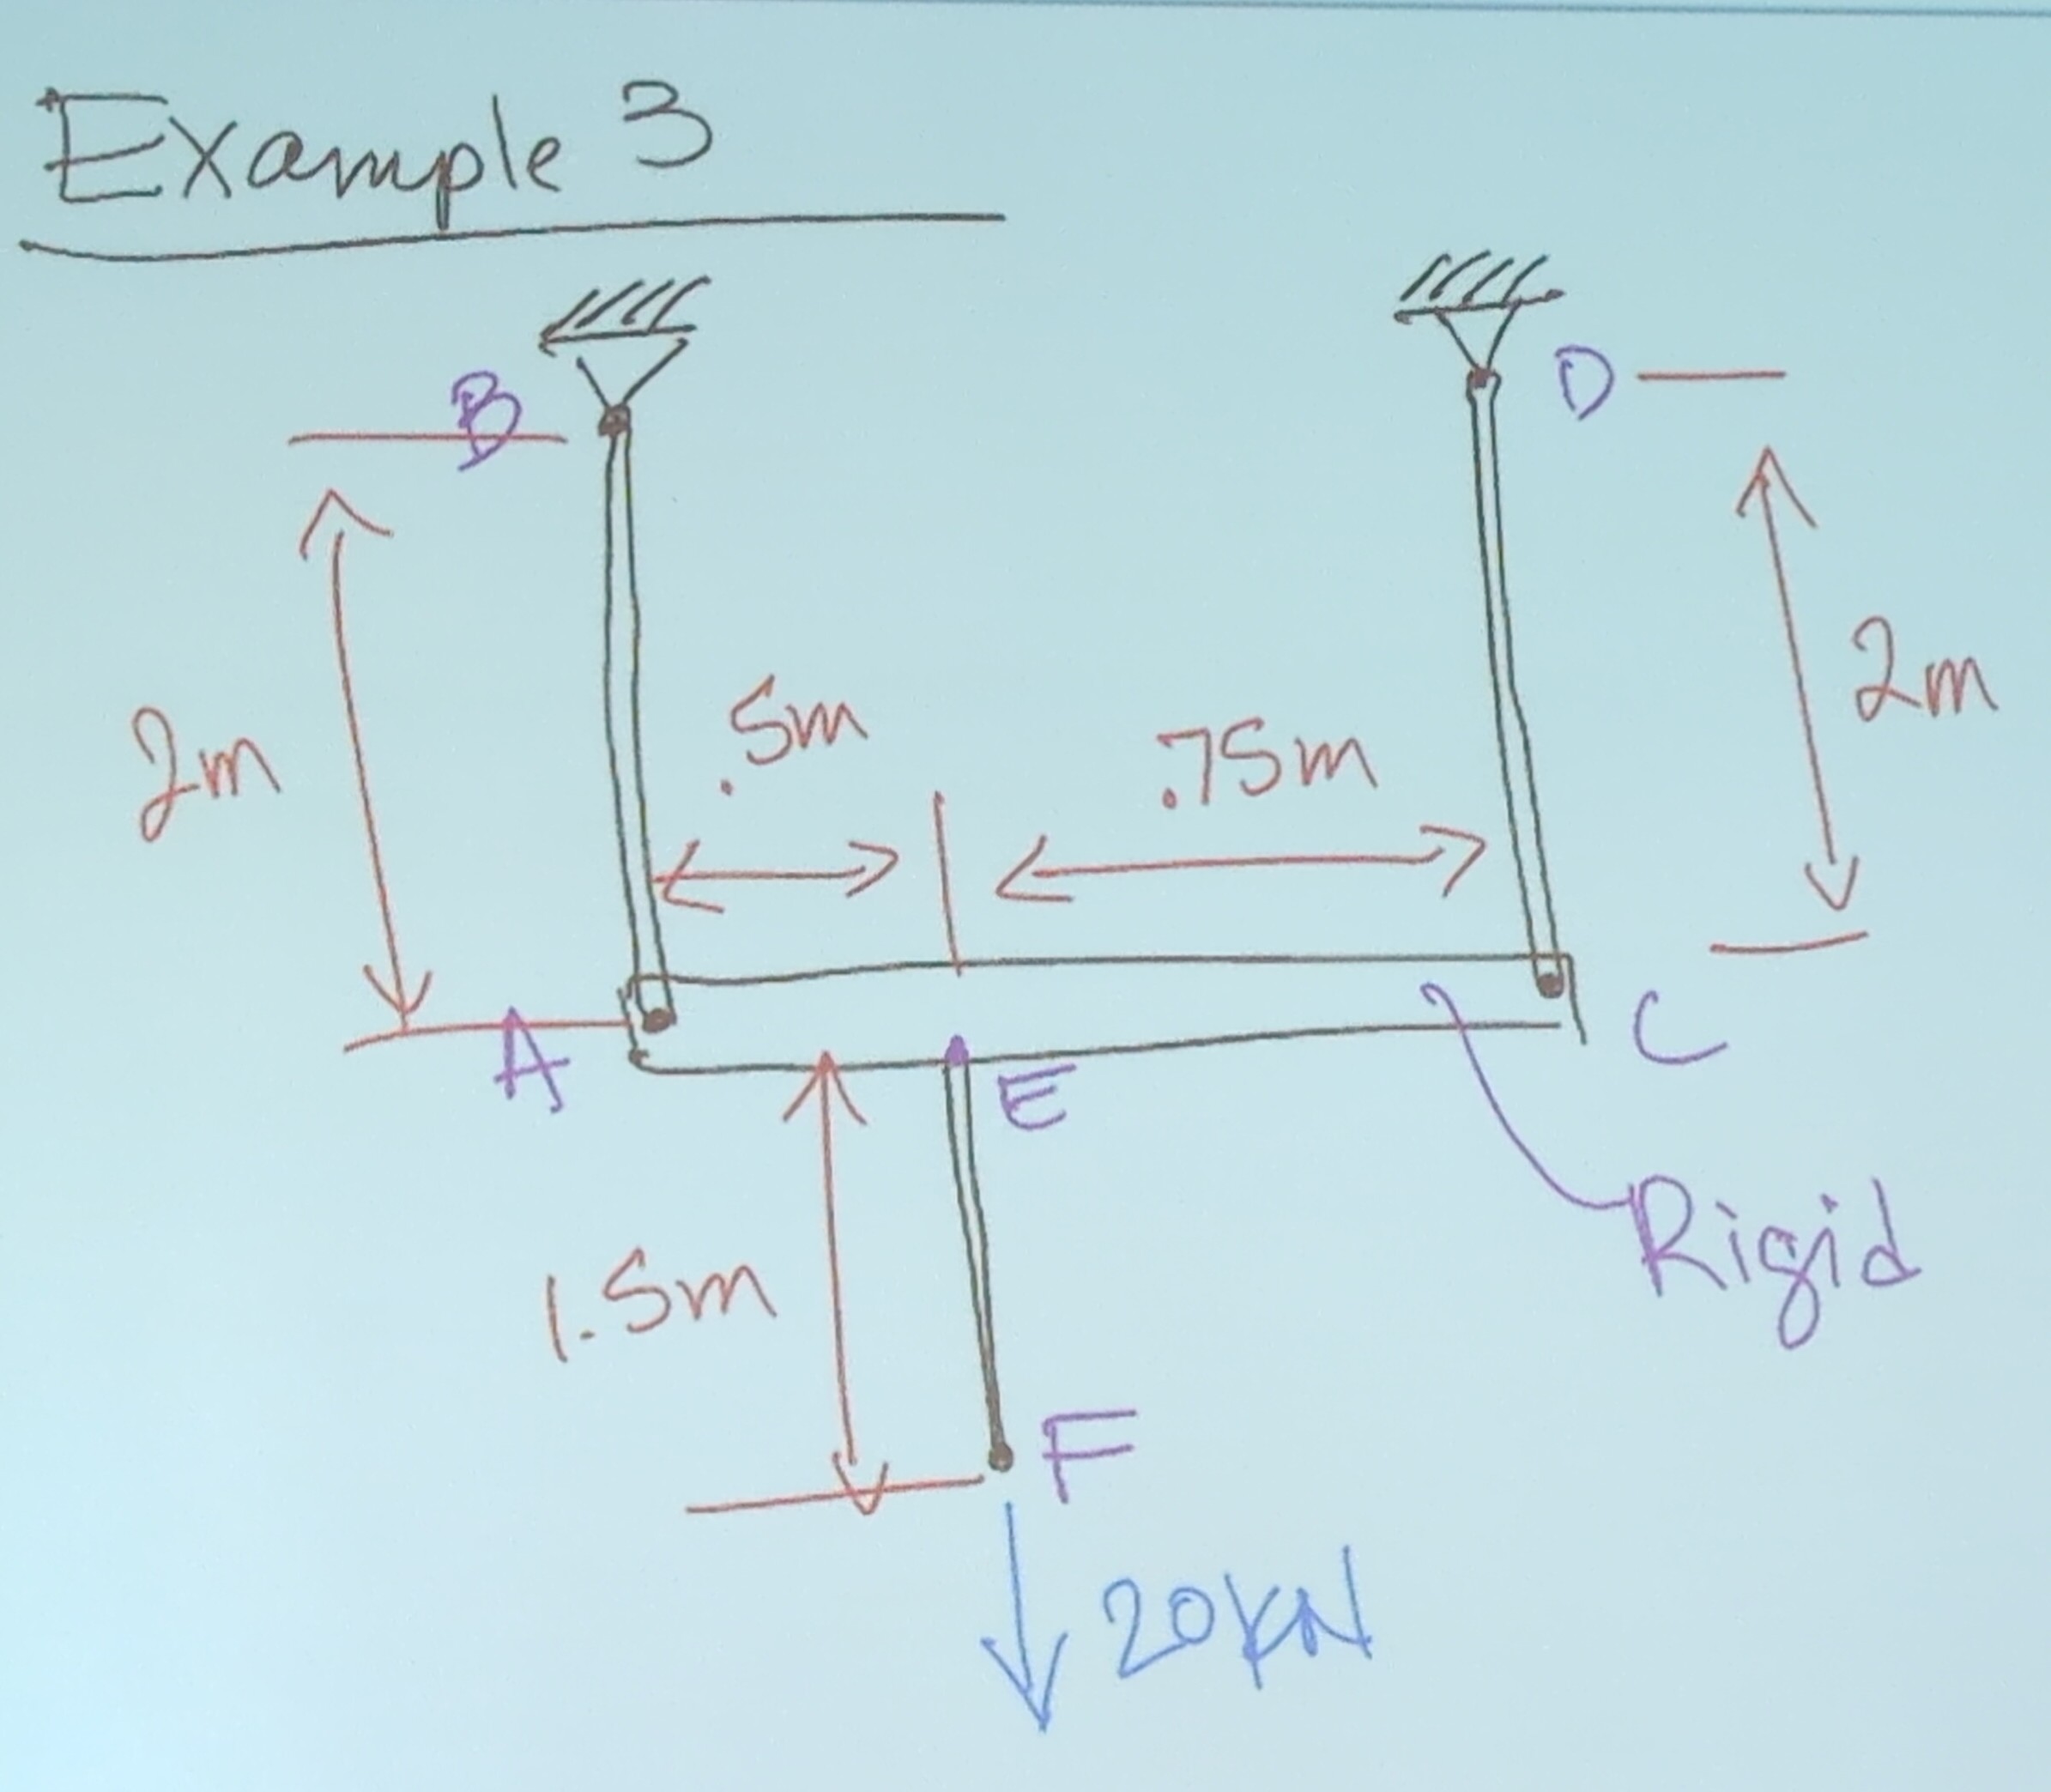 Example 3
B
D
2m
2m
.5m
.75m
A
E
C
1.5m
Rigid
F
20kN